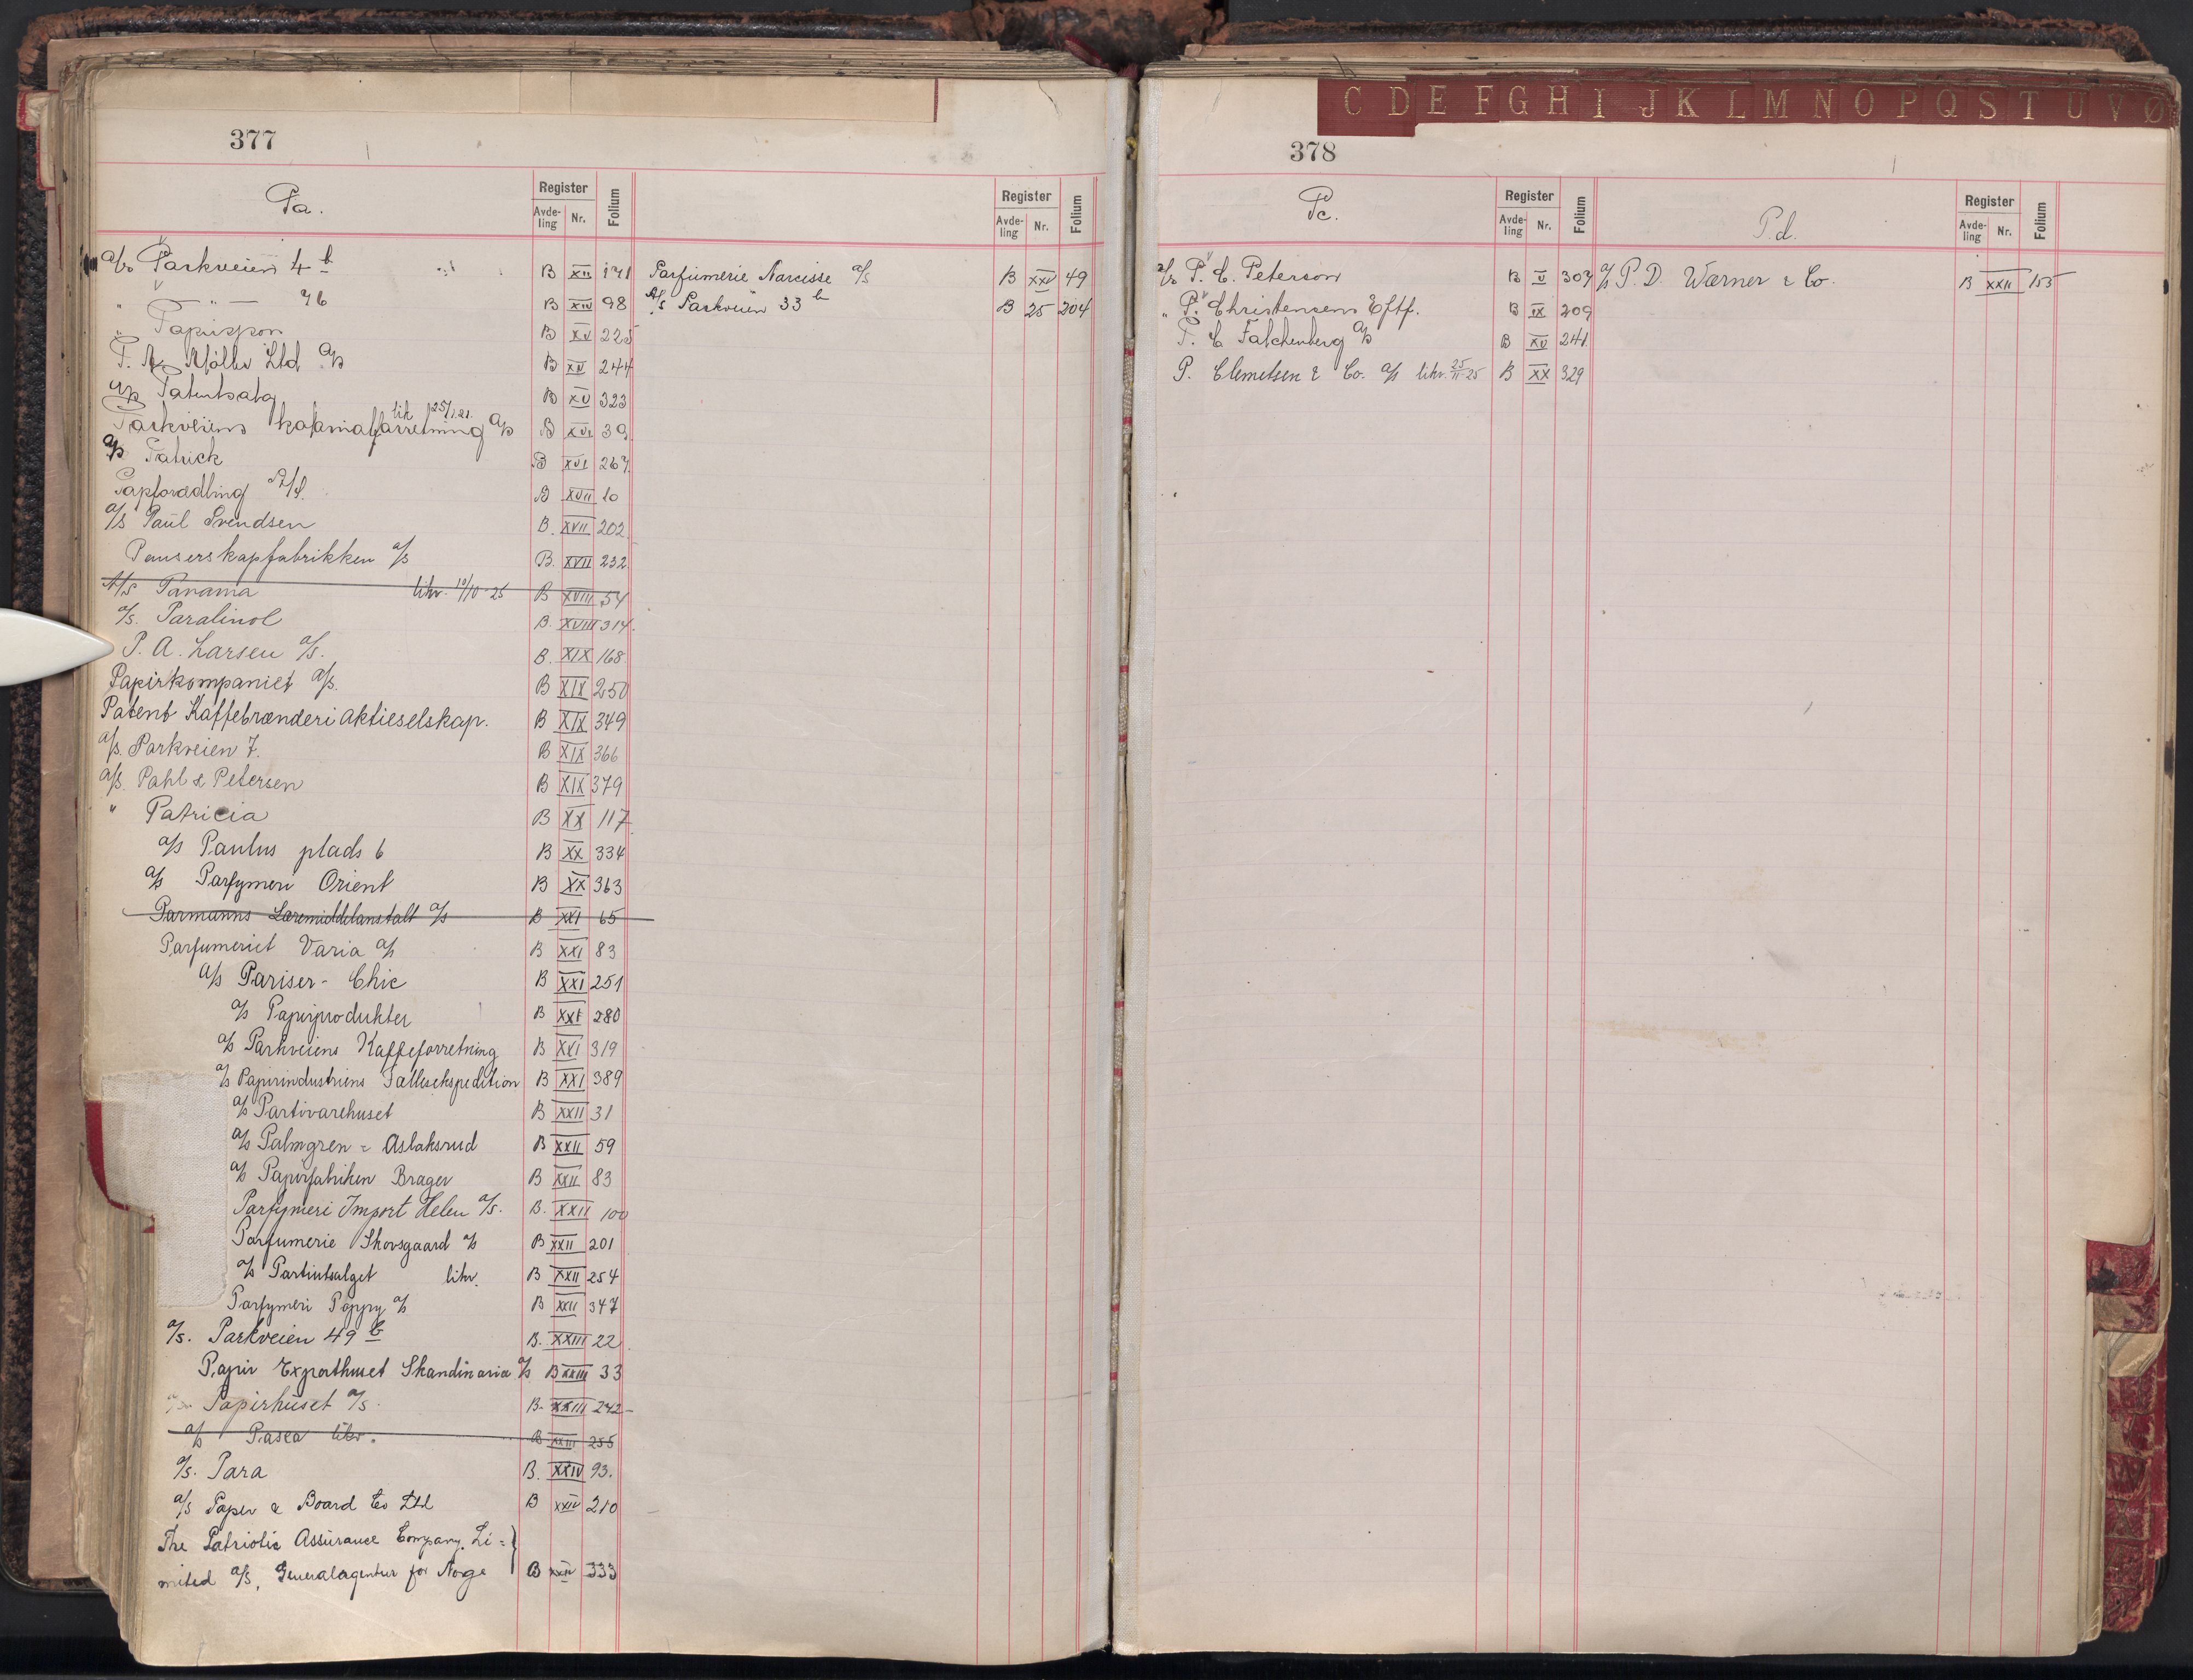 C D E F G H I J K L M N O P Q S T U V Ø
377
Pa.
Register
Avde-
ling
Nr.
Folium
A/s Parkveien 4 b B XII 171
" " — 76 B XIV 98
" Papirspon B XV 225
P. A. Møller Ltd A/s B XV 244
A/s Patentsalg B XV 323
lik 25/1.21.
Parkveiens kolonialforretning A/s B XVI 39
A/s Patrick B XVI 267
Papforædling A/S. B XVII 10
A/s Paul Svendsen B. XVII 202
Panserskapfabrikken A/s B. XVII 232
A/S Panama likv. 10/10-25 B XVIII 54
A/s. Paralinol B. XVIII 314.
P. A. Larsen A/s. B. XIX 168
Papirkompaniet A/s. B XIX 250
Patent Kaffebrænderi Aktieselskap. B XIX 349
A/s. Parkveien 7. B XIX 366
A/s. Pahl & Petersen B XIX 379
" Patricia B XX 117
A/s Paulus plads 6 B XX 334
A/s Parfymeri Orient B XX 363
Parmanns Læremiddelanstalt A/s B XXI 65
Parfumeriet Varia A/s B XXI 83
A/s Pariser-Chic B XXI 251
A/s Papirprodukter B XXI 280
A/s Parkveiens Kaffeforretning B XXI 319
A/s Papirindustriens Fællesekspedition B XXI 389
A/s Partivarehuset B XXII 31
A/s Palmgren & Aslaksrud B XXII 59
A/s Papirfabriken Brager B XXII 83
Parfymeri Import Helen A/s. B. XXII 100
Parfumerie Skovsgaard A/s B XXII 201
A/s Partiutsalget likv. B XXII 254
Parfymeri Poppy A/s B XXII 347
A/s. Parkveien 49 b B. XXIII 22
Papir Exporthuset Skandinavia A/s B XXIII 33
Papirhuset A/s. B. XXIII 242
A/s Pasca likv. B XXIII 255
A/s. Para B. XXIV 93.
A/s Paper & Board Co Ltd B XXIV 210
The Patriotic Assurance Company, Li=
mited A/s, Generalagentur for Norge B XXIV 333
Register
Avde-
ling
Nr.
Folium
Parfumerie Narcisse A/s B XXV 49
A/s Parkveien 33 b B 25 204
378
Pc.
Register
Avde-
ling
Nr.
Folium
A/s P. C. Peterson B V 307
" P. Christensens Eftf. B IX 209
P. C. Falchenberg A/s B XV 241
P. Clemetsen & Co. A/s likv. 25/11-25 B XX 329
Pd.
Register
Avde-
ling
Nr.
Folium
A/s P. D. Warner & Co. B XXII 155